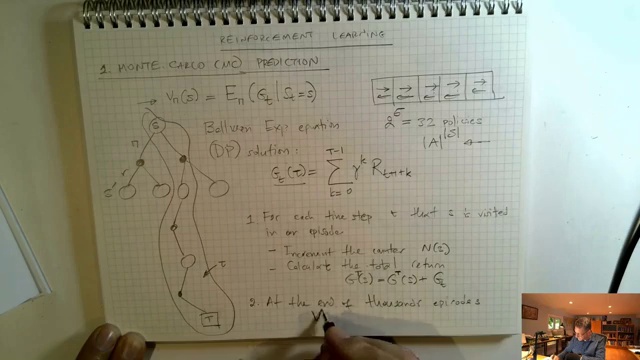 REINFORCEMENT LEARNING
1. MONTE CARLO (MC) PREDICTION
→ Vπ(s) = Eπ(Gt | St=s)
2^5 = 32 policies
|A|^|S| ←
Bellman Exp equation
(DP) solution:
Gt(τ) = Σ_{k=0}^{T-1} γ^k Rt+1+k
S
π
r
s'
τ
T
1. For each time step t that s is visited
in an episode
- Increment the counter N(s)
- Calculate the total return
G^T(s) = G^T(s) + Gt
2. At the end of thousands episodes
V